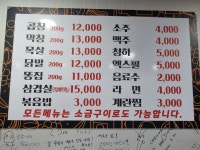 곱창 200g 12,000 소주 4,000
막창 200g 13,000 맥주 4,000
목살 200g 13,000 청하 5,000
닭발 200g 12,000 엑스필 5,000
똥집 200g 11,000 음료수 2,000
삼겹살 15,000 라면 4,000
볶음밥 3,000 계란찜 3,000
모든메뉴는 소금구이로도 가능합니다.